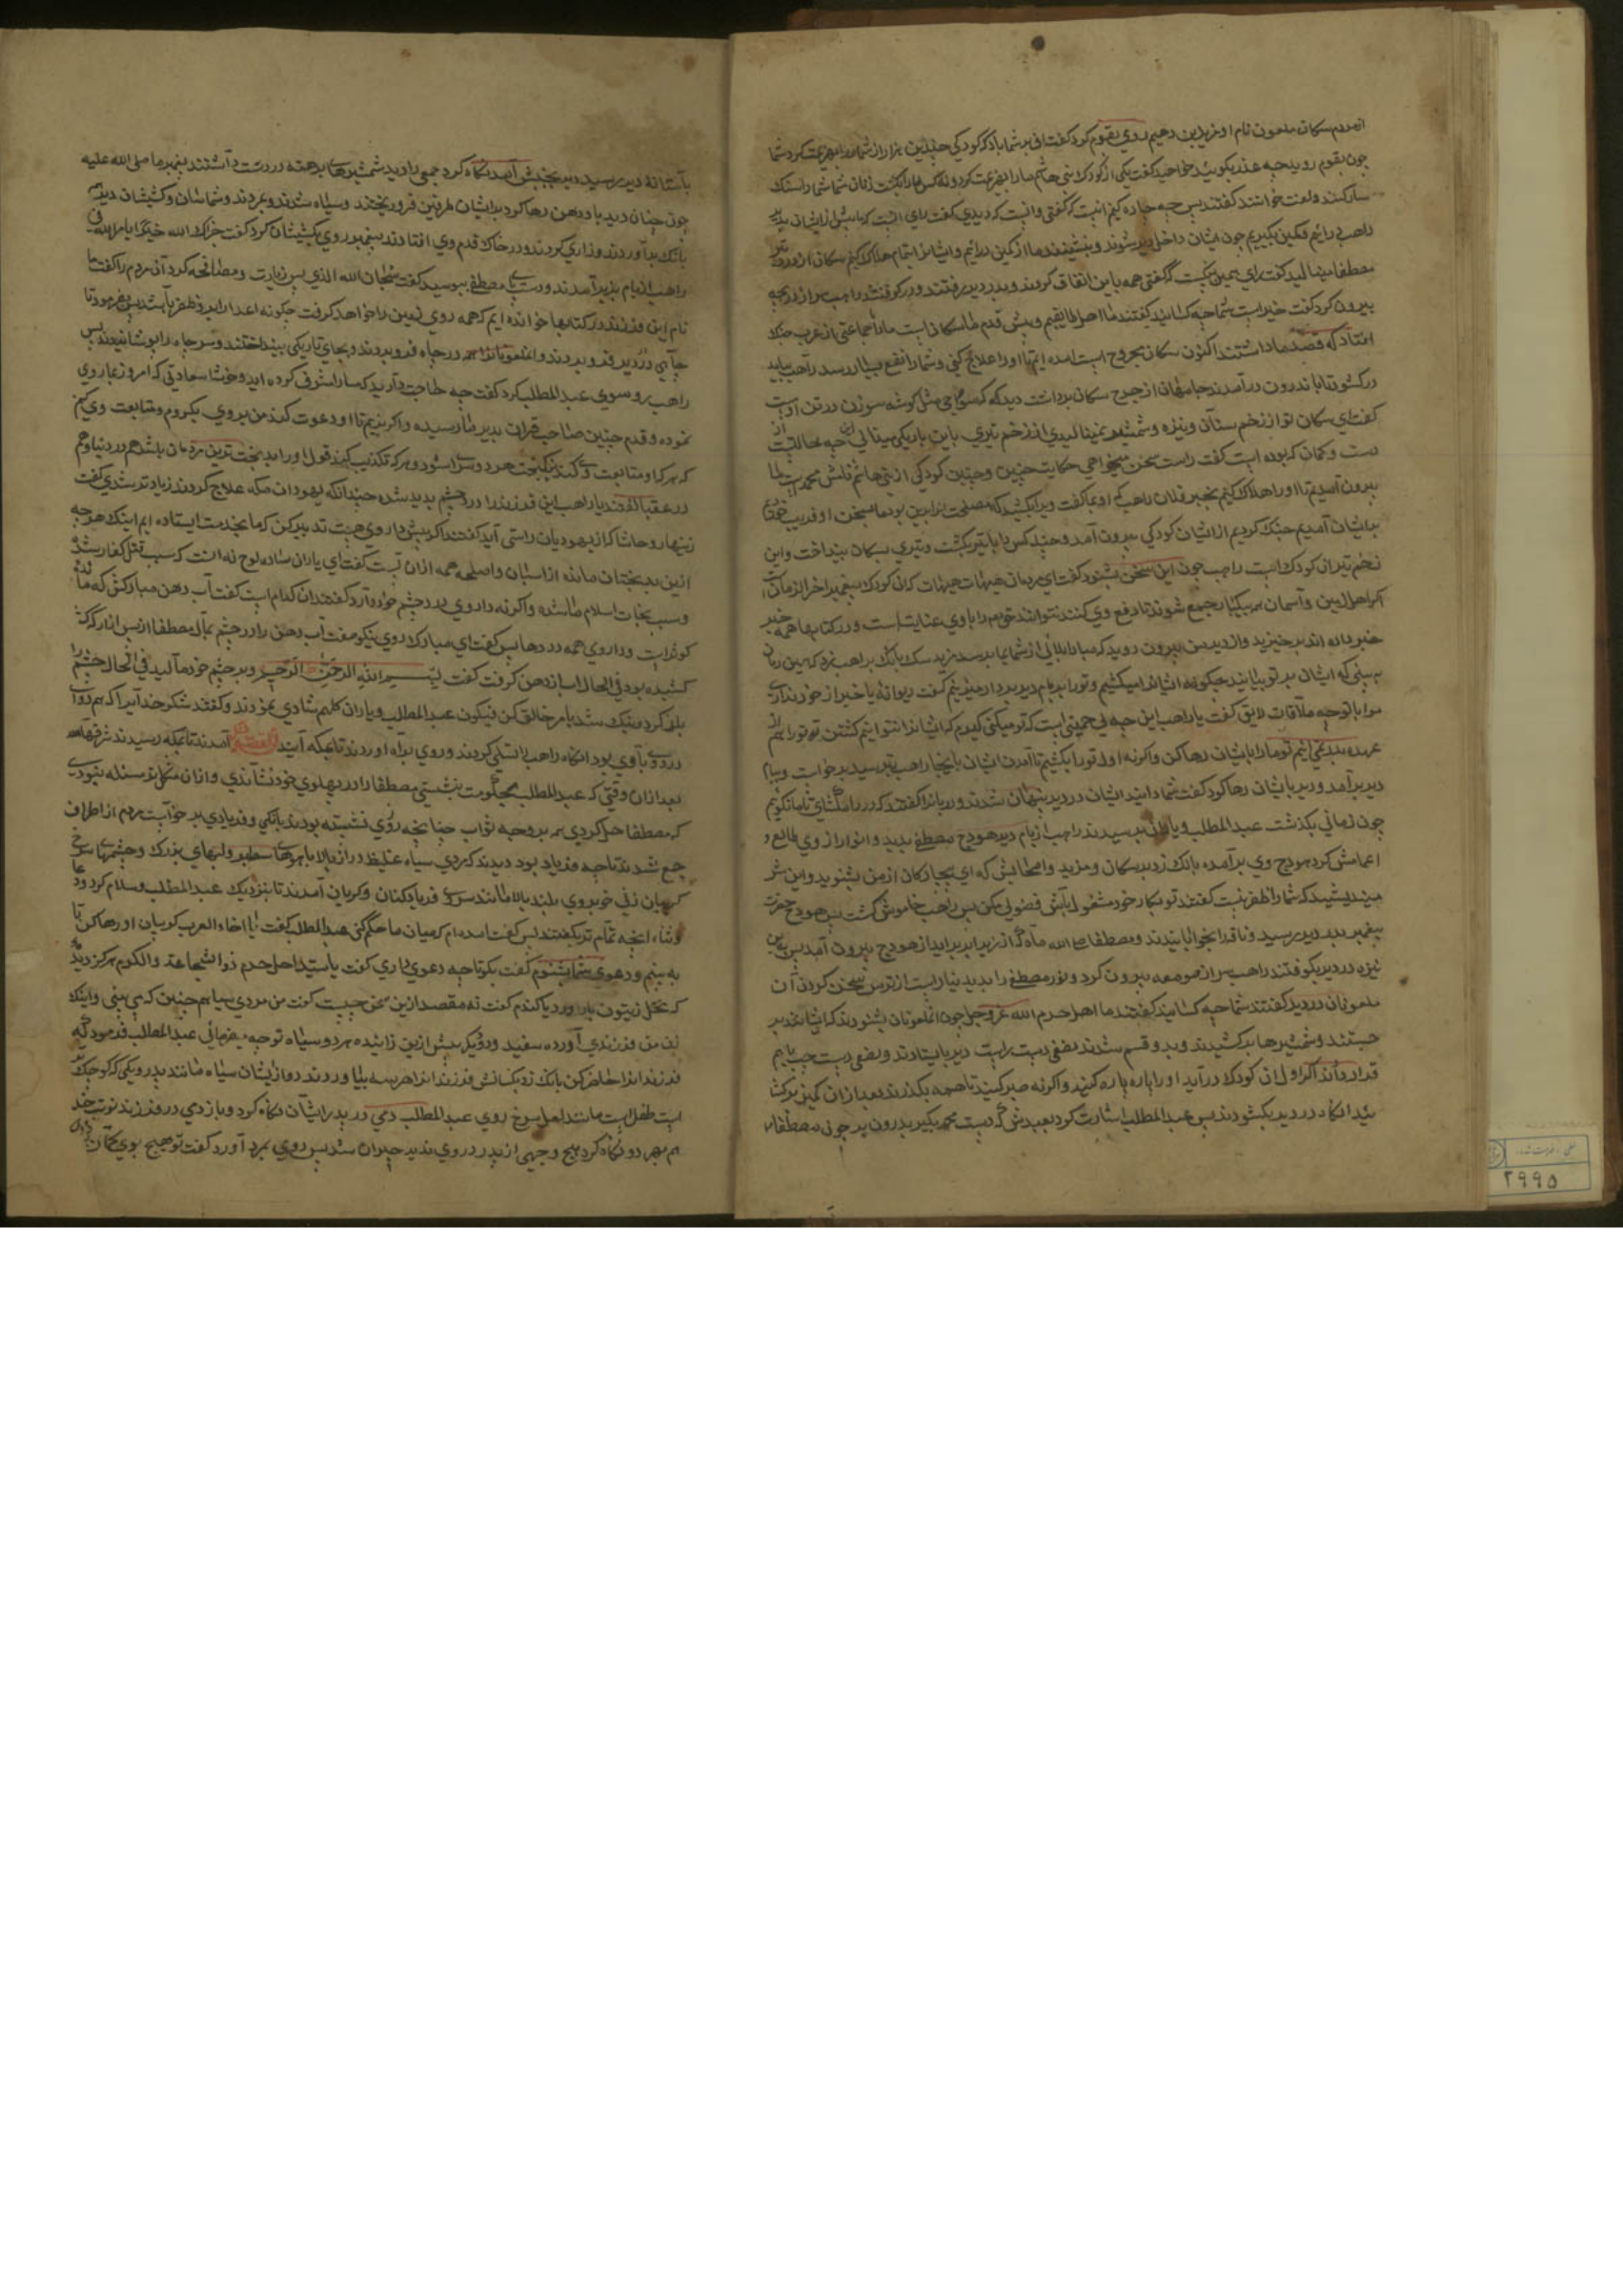 ازمردم سکان ملعون نام او مزید بن رحیم روی بقوم کرد گفت اف بر شما باد که کودکی چندین هزار از شما را بهزیمت کرد شما
چون بقوم روید چه عذر بگویید خواهید گفت یکی از کودک بنی هاشم ما را بهزیمت کرد و نه کس ما را بکشت زنان شما شما را سنک
سار کنند و لعنت خوانند گفتند پس چه چاره کنیم
راهب در آییم و کمین بگیریم چون ایشان داخل دیر شوند و بنشینند ما از کمین درآییم و ایشانرا تمام هلاک کنیم سکان از درد تیر
مصطفا مینالید گفت رای همین نیکست که گفتی همه باین اتفاق کردند و بدر دیر رفتند و در کوفتند راهب سر از دریچه
بیرون کرد گفت خیر است شما چه کسانید گفتند ما اهل طایفیم و پیش قدم ما سکان است ما را جماعتی از عرب جنک
افتاد که قصد ما داشتند اکنون سکان مجروح است آمده ایم تا او را علاج کنی و شما را نفع بسیار رسد راهب بیامد
در کشود تا باندرون درآمدند جامهای از جرح سکان برداشت دید که
کفت ای سکان تو از زخم سنان و نیزه و شمشیر نمینالیدی از زخم تیری باین باریکی مینالی این چه حالتست از
دست و کمان که بوده است گفت راست سخن میخواهی حکایت چنین و چنین کودکی از بنی هاشم نامش محمد است ما
بیرون آمدیم تا او را هلاک کنیم بخبر فلان راهب که
بدیشان آمدیم جنک کردیم از ایشان کودکی بیرون آمد و چند کس را با تیر بکشت و تیری بسکان بینداخت و این
زخم تیر آن کودک است راهب چون این سخن بشنود گفت ای مردمان هیهات هیهات که آن کودک پیغمبر آخرالزمان است
اکر اهل زمین و آسمان بیکبار جمع شوند تا دفع وی کنند نتوانند
خبر داده اند برخیزید و از دیر من بیرون روید که مبادا بلائی از شما بما برسد مزید سک بانک براهب زد که همین زمان
ببینی که ایشان بر تو بیایند چگونه ایشانرا میکشیم و تو را بر بام دیر بر دار میزنیم گفت دیوانه یا خبر از خود نداری
مرا با تو چه ملاقات لایق گفت یا راهب این چه بی حمیتی است که تو میکنی
عهده بدر نمی آییم تو ما را بایشان رها کن و اکر نه اول تو را بکشیم تا آمدن ایشان باینجا راهب بترسید برخواست و بیام
دیر برآمد و دیر بایشان رها کرد گفت شما دانید ایشان در دیر پنهان شدند و دربانرا گفتند که در را مکشای تا ما نکوییم
چون زمانی بگذشت عبدالمطلب و یاران برسیدند راهب از بام دیر هودج مصطفی بدید و انوار از وی طالع و
بانک زد بر سکان و مزید و اصحابش که ای بیچارکان از من بشنوید و این شر
میندیشید که شما را ظفر نیست گفتند تو بکار خود مشغول باش فضولی مکن پس راهب خاموش گشت پس هودج حضرت
پیغمبر بدر دیر رسید و ناقه را بخوابانیدند
نیزه در دیر بکوفتند راهب سر از صومعه بیرون کرد و نور مصطفی را بدید نیارست از ترس سخن کردن آن
ملعونان در دیر گفتند شما چه کسانید گفتند ما اهل حرم الله عز و جل چون آن ملعونان بشنودند که ایشانند بر
جستند و شمشیرها برکشیدند و بدو قسم شدند بعضی دست راست دیر بایستادند و بعضی دست چپ با هم
قرار دادند اکر اول آن کودک درآید او را پاره پاره کنید و اکر نه صبر کنید تا همه بگذرند بعد از آن کمین برکشا
ئید آنکاه در دیر بکشودند پس عبدالمطلب اشارت کرد
بآستانه دیر رسید دیر بجنبش آمد نکاه کرد جمعی را دید شمشیرهای برهنه در دست داشتند پیغمبر ما صلی الله علیه
چون چنان دید باد دهن رها کرد بر ایشان طرفین فرو ریختند و سیاه شدند و بمردند و شماسان و کشیشان دیر
بانک برآوردند و زاری کردند و در خاک قدم وی افتادند پیغمبر روی بکشیشان کرد گفت جزاک الله خیرا
راهب از بام بزیر آمدند و دست و پای مصطفی ببوسید گفت سبحان الله الذی پس زیارت و مصافحه کرد آن مردم را گفت ما
نام این فرزند در کتابها خوانده ایم که همه روی زمین را خواهد گرفت چگونه اعدا را بر او ظفر باشد پس بفرمود تا
چاهی در دیر فرو بردند و آن ملعونانرا در چاه فرو بردند و بجای تاریکی بینداختند و سر چاه را بپوشانیدند پس
راهب رو سوی عبدالمطلب کرد گفت چه حاجت دارید که ما را مشرف کرده اید و خوشا سعادتی که امروز بما روی
نموده و قدم چنین صاحب قران بدیر ما رسیده و اکر نزیم تا او دعوت کند من بروی بگروم و متابعت وی کنم
که هر که او متابعت وی کند نیکبخت هر دو سرا شود و هر که تکذیب کند قول او را بدبخت ترین مردمان باشد هم در دنیا و هم
در عقبا گفتند یا راهب این فرزند را درد چشم پدید شده چندانکه یهودان مکه علاج کردند زیادتر شد وی گفت
زینهار و حاشا که از یهودیان راستی آید گفتند اکر پیش تو داروی هست تدبیر کن که ما بخدمت ایستاده ایم
ازین بدبختان مانده
و سبب نجات اسلام ما باشد و اکر نه داروی درد چشم خود دارد گفتند آن کدام است گفت آب دهن مبارکش که ماننده
کوثر است و داروی همه دردها پس گفت ای مبارک روی نیکو صفت آب دهن را در چشم بمال مصطفا
کشیده بود فی الحال آب از دهن گرفت گفت بسم الله الرحمن الرحیم و بر چشم خود مالید فی الحال چشم را
باز کرد و نیک شد بامر خالق کن فیکون عبدالمطلب و یاران کلهم شادی نمودند و گفتند شکر خدایرا که هم دوا
درد با وی بود آنکاه راهب را تسلی کردند و روی براه آوردند تا بمکه آیند القصه آمدند تا بمکه رسیدند
بعد از آن وقتی که عبدالمطلب بحکومت بنشستی مصطفا را در پهلوی خود نشاندی و از آن مشکلتر مسئله نبودی
که مصطفا حل کردی هم بر وجه ثواب چنانچه روزی نشسته بودند بانکی و فریادی برخواست مردم از اطراف
جمع شدند تا چه فریاد بود دیدند که مردی سیاه غلیظ دراز بالا با موهای سطبر و لبهای بزرک و چشمهای سرخ
گریبان زنی خوبروی بلند بالا مانند سرو فریاد کنان و گریان آمدند تا بنزدیک عبدالمطلب و سلام کرد و دعا
و ثنا، آنچه تمام تر بگفتند پس گفت آمده ام که میان ما حکم کنی عبدالمطلب گفت یا اخاء العرب گریبان او رها کن تا
به بینم و دعوی شما بشنوم گفت بگو تا چه دعوی داری گفت یا سید اهل حرم ذوالشجاعة والکرم هرکز دیدی
که نخل زیتون بار آورد یا گندم گفت نه مقصد ازین سخن چیست گفت من مردی سیاهم چنین که می بینی و اینک
زن من فرزندی آورده سفید و دو دیگر پیش ازین زائیده هر دو سیاه تو چه میفرمائی عبدالمطلب فرمود که
فرزندانرا حاضر کن بانک زد بکسانش فرزندانرا هر سه بیاوردند دو از ایشان سیاه مانند پدر و یکی که کوچک
است طفل است مانند لعل سرخ روی عبدالمطلب دمی در پدر ایشان نکاه کرد و باز دمی در فرزند نوبت چند
هم بهر دو نکاه کرد هیچ وجهی از پدر در وی ندید حیران شد پس روی بمرد آورد گفت تو هیچ بوی کمان
۲۹۹۵